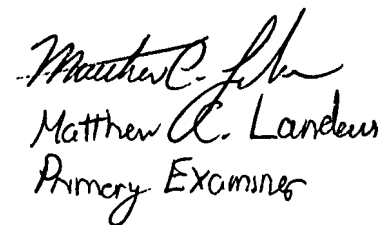 Matthew C.
Matthew C. Landeus
Primary Examiner